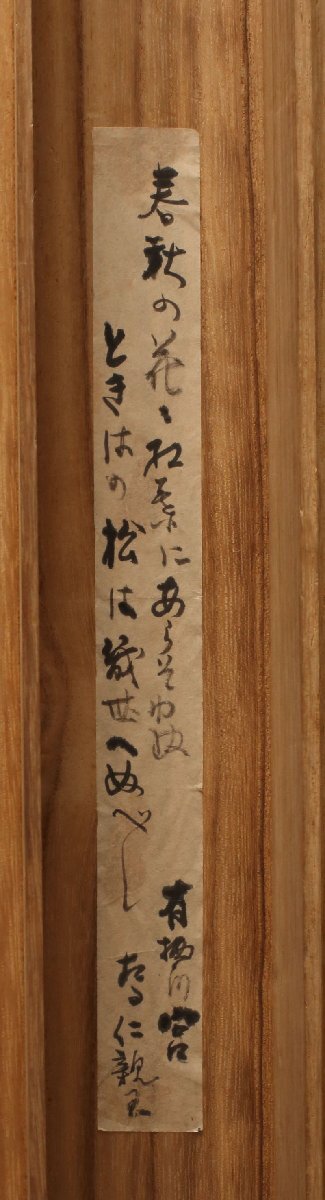 春秋の花ゝ紅葉にあらそはぬ
ときはの松は幾世へぬべし
有栖川宮
たる仁親王